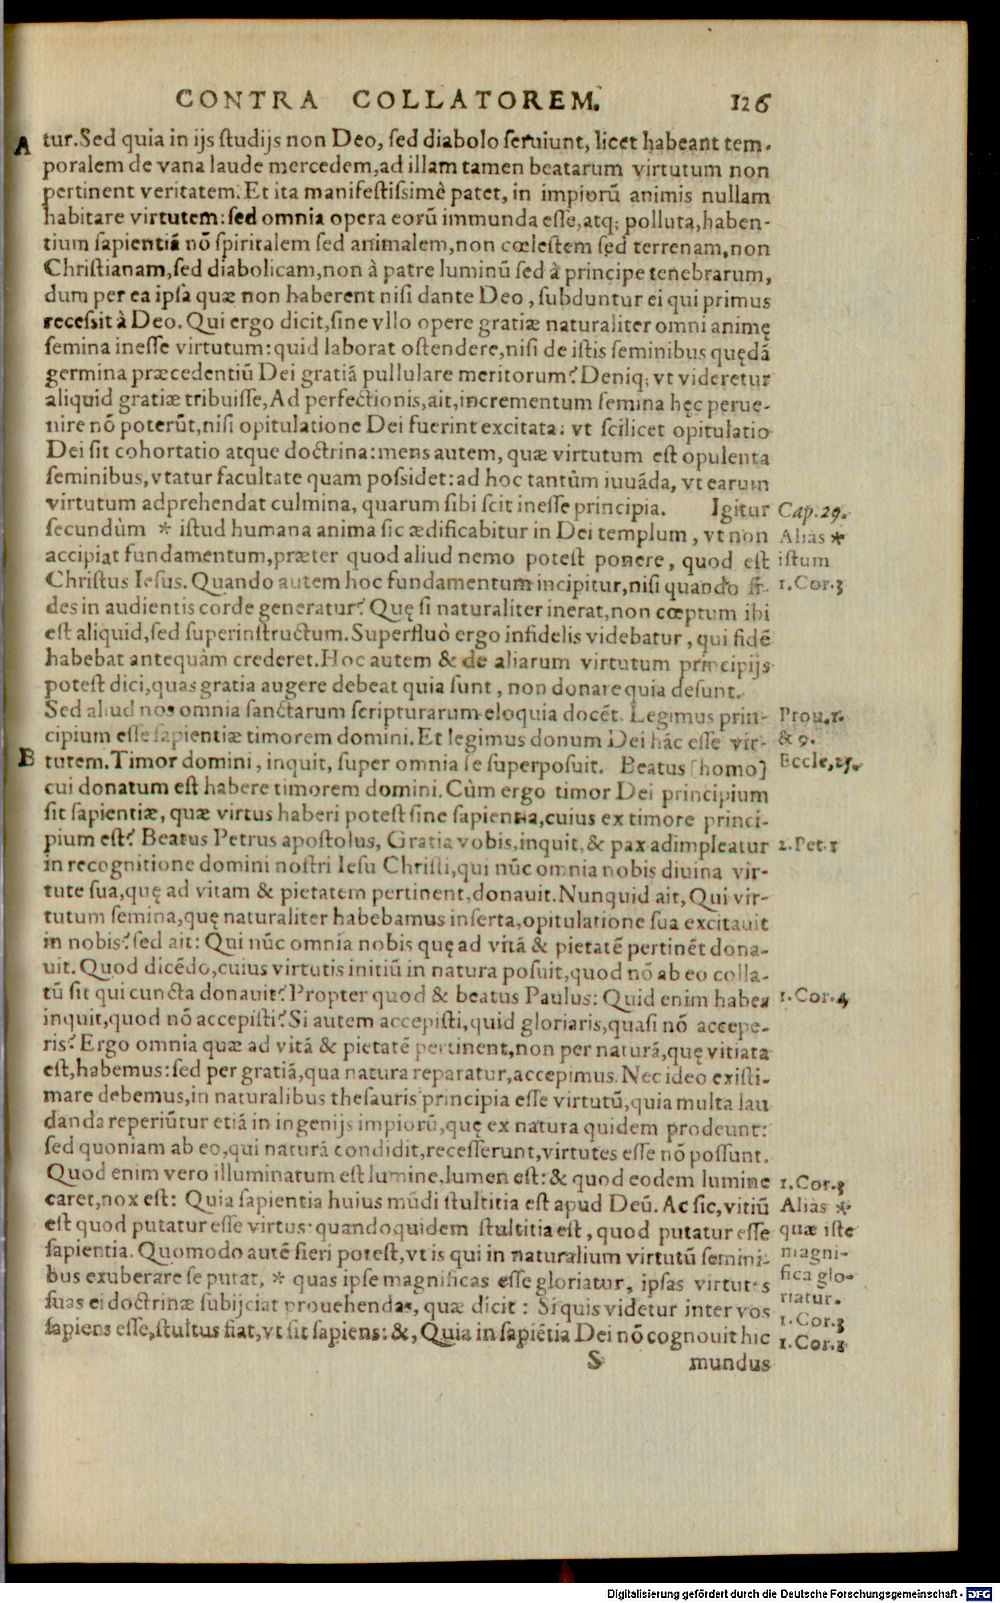 CONTRA COLLATOREM. 126
A tur. Sed quia in ijs studijs non Deo, sed diabolo seruiunt, licet habeant tem-
poralem de vana laude mercedem, ad illam tamen beatarum virtutum non
pertinent veritatem. Et ita manifestissimè patet, in impiorū animis nullam
habitare virtutem: sed omnia opera eorū immunda esse, atq; polluta, haben-
tium sapientiā nō spiritalem sed animalem, non cœlestem sed terrenam, non
Christianam, sed diabolicam, non à patre luminū sed à principe tenebrarum,
dum per ea ipsa quæ non haberent nisi dante Deo, subduntur ei qui primus
recessit à Deo. Qui ergo dicit, sine vllo opere gratiæ naturaliter omni animę
semina inesse virtutum: quid laborat ostendere, nisi de istis seminibus quędā
germina præcedentiū Dei gratiā pullulare meritorum? Deniq; vt videretur
aliquid gratiæ tribuisse, Ad perfectionis, ait, incrementum semina hęc perue-
nire nō poterūt, nisi opitulatione Dei fuerint excitata: vt scilicet opitulatio
Dei sit cohortatio atque doctrina: mens autem, quæ virtutum est opulenta
seminibus, vtatur facultate quam possidet: ad hoc tantùm iuuāda, vt earum
virtutum adprehendat culmina, quarum sibi scit inesse principia. Igitur Cap. 29.
secundùm * istud humana anima sic ædificabitur in Dei templum, vt non Alias *
accipiat fundamentum, præter quod aliud nemo potest ponere, quod est istum
Christus Iesus. Quando autem hoc fundamentum incipitur, nisi quando fi- 1. Cor. 3
des in audientis corde generatur? Quę si naturaliter inerat, non cœptum ibi
est aliquid, sed superinstructum. Superfluò ergo infidelis videbatur, qui fidē
habebat antequàm crederet. Hoc autem & de aliarum virtutum principijs
potest dici, quas gratia augere debeat quia sunt, non donare quia desunt.
Sed aliud nos omnia sanctarum scripturarum eloquia docēt. Legimus prin- Prou. 1.
cipium esse sapientiæ timorem domini. Et legimus donum Dei hāc esse vir- & 9.
B tutem. Timor domini, inquit, super omnia se superposuit. Beatus [homo] Eccle. 25.
cui donatum est habere timorem domini. Cùm ergo timor Dei principium
sit sapientiæ, quæ virtus haberi potest sine sapientia, cuius ex timore princi-
pium est? Beatus Petrus apostolus, Gratia vobis, inquit, & pax adimpleatur 2. Pet. 1
in recognitione domini nostri Iesu Christi, qui nūc omnia nobis diuina vir-
tute sua, quę ad vitam & pietatem pertinent, donauit. Nunquid ait, Qui vir-
tutum semina, quę naturaliter habebamus inserta, opitulatione sua excitauit
in nobis? sed ait: Qui nūc omnia nobis quę ad vitā & pietatē pertinēt dona-
uit. Quod dicēdo, cuius virtutis initiū in natura posuit, quod nō ab eo colla-
tū sit qui cuncta donauit? Propter quod & beatus Paulus: Quid enim habes 1. Cor. 4
inquit, quod nō accepisti? Si autem accepisti, quid gloriaris, quasi nō accepe-
ris? Ergo omnia quæ ad vitā & pietatē pertinent, non per naturā, quę vitiata
est, habemus: sed per gratiā, qua natura reparatur, accepimus. Nec ideo existi-
mare debemus, in naturalibus thesauris principia esse virtutū, quia multa lau
danda reperiūtur etiā in ingenijs impiorū, quę ex natura quidem prodeunt:
sed quoniam ab eo, qui naturā condidit, recesserunt, virtutes esse nō possunt.
Quod enim vero illuminatum est lumine, lumen est: & quod eodem lumine 1. Cor. 3
caret, nox est: Quia sapientia huius mūdi stultitia est apud Deū. Ac sic, vitiū Alias *
est quod putatur esse virtus: quandoquidem stultitia est, quod putatur esse quæ iste
sapientia. Quomodo autē fieri potest, vt is qui in naturalium virtutū semini- magni-
bus exuberare se putat, * quas ipse magnificas esse gloriatur, ipsas virtutes fica glo-
suas ei doctrinæ subijciat prouehendas, quæ dicit: Si quis videtur inter vos riatur.
1. Cor. 3
sapiens esse, stultus fiat, vt sit sapiens: &, Quia in sapiētia Dei nō cognouit hic 1. Cor. 1
S mundus
Digitalisierung gefördert durch die Deutsche Forschungsgemeinschaft - DFG